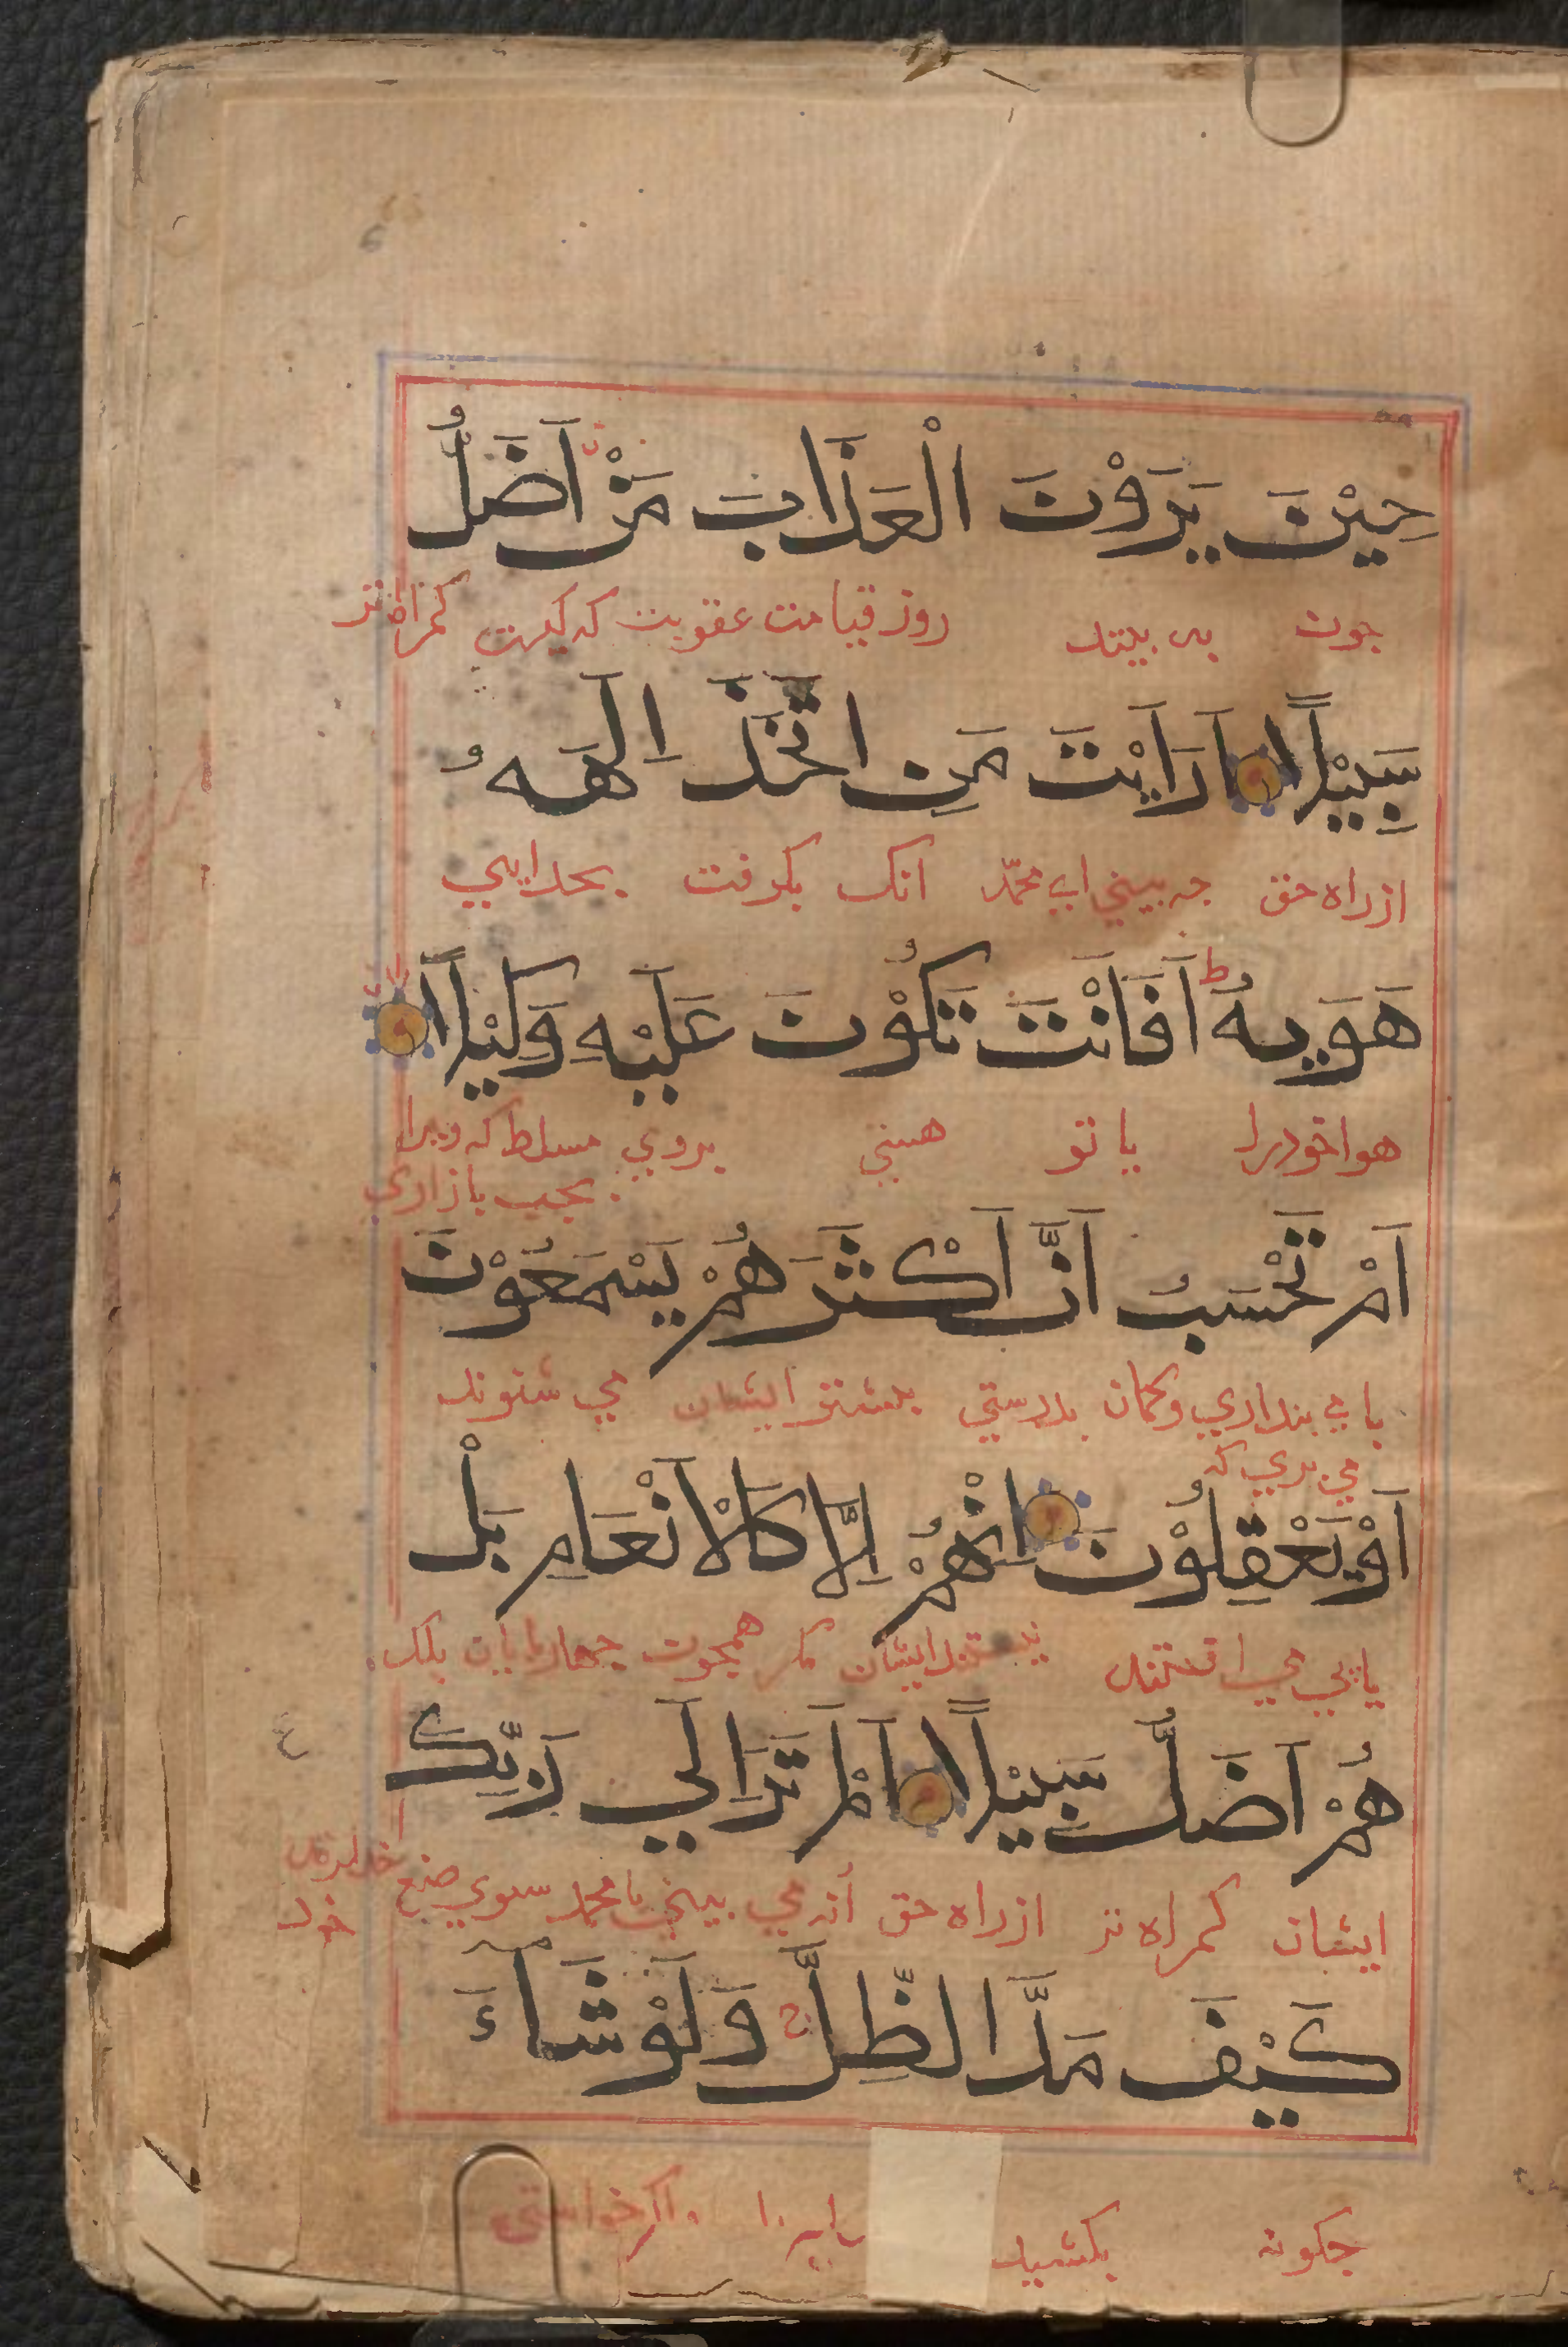 حِيْنَ يَرَوْنَ الْعَذَابَ مَنْ اَضَلُّ
جون می بینند روز قیامت عقوبت که کیست کمراه تر
سَبِيْلًا اَرَاَيْتَ مَنِ اتَّخَذَ اِلٰهَهُ
ازراه حق جه بینی ای محمّد انک بکرفت بخدایی
هَوٰىهُ ط اَفَاَنْتَ تَكُوْنُ عَلَيْهِ وَكِيْلًا
هواخودرا یا تو هستی بروی مسلط که ویرا
بجبر بازاری
اَمْ تَحْسَبُ اَنَّ اَكْثَرَهُمْ يَسْمَعُوْنَ
یا می بنداری وکمان بدرستی بیشتر ایشان می شنوند
می بری که
اَوْ يَعْقِلُوْنَ اِنْ هُمْ اِلَّا كَالْاَنْعَامِ بَلْ
نیستند ایشان مکر همجون جهاربایان بلک
هُمْ اَضَلُّ سَبِيْلًا اَلَمْ تَرَ اِلٰي رَبِّكَ
ایشان کمراه تر ازراه حق انه می بینی یا محمد سوی صنع
خود
كَيْفَ مَدَّ الظِّلَّ وَلَوْ شَآءَ
جکونه بکشید واکر خواستی